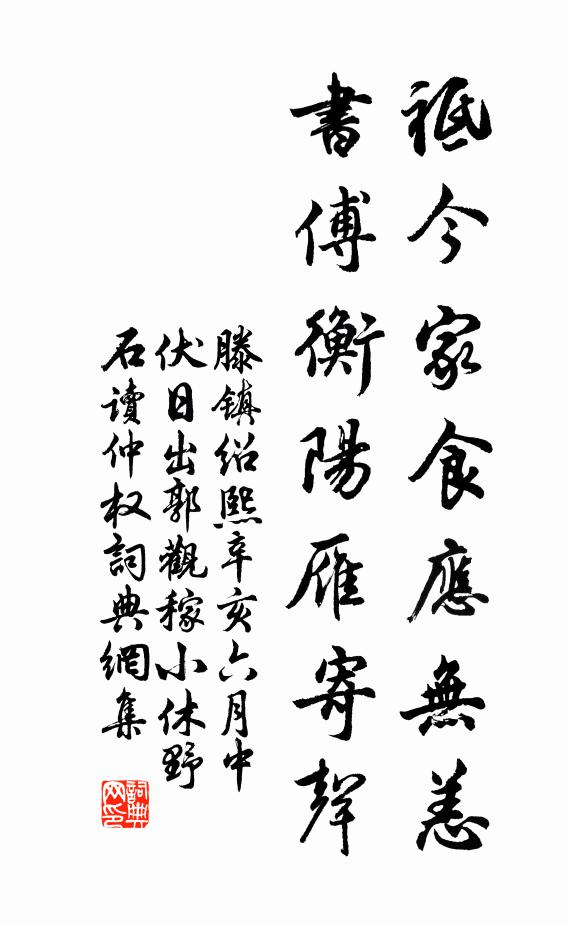 祇今家食應無恙
書傳衡陽雁寄聲
滕鎮紹熙辛亥六月中
伏日出郭觀稼小休野
石讀仲权詞典網集
詞典网印